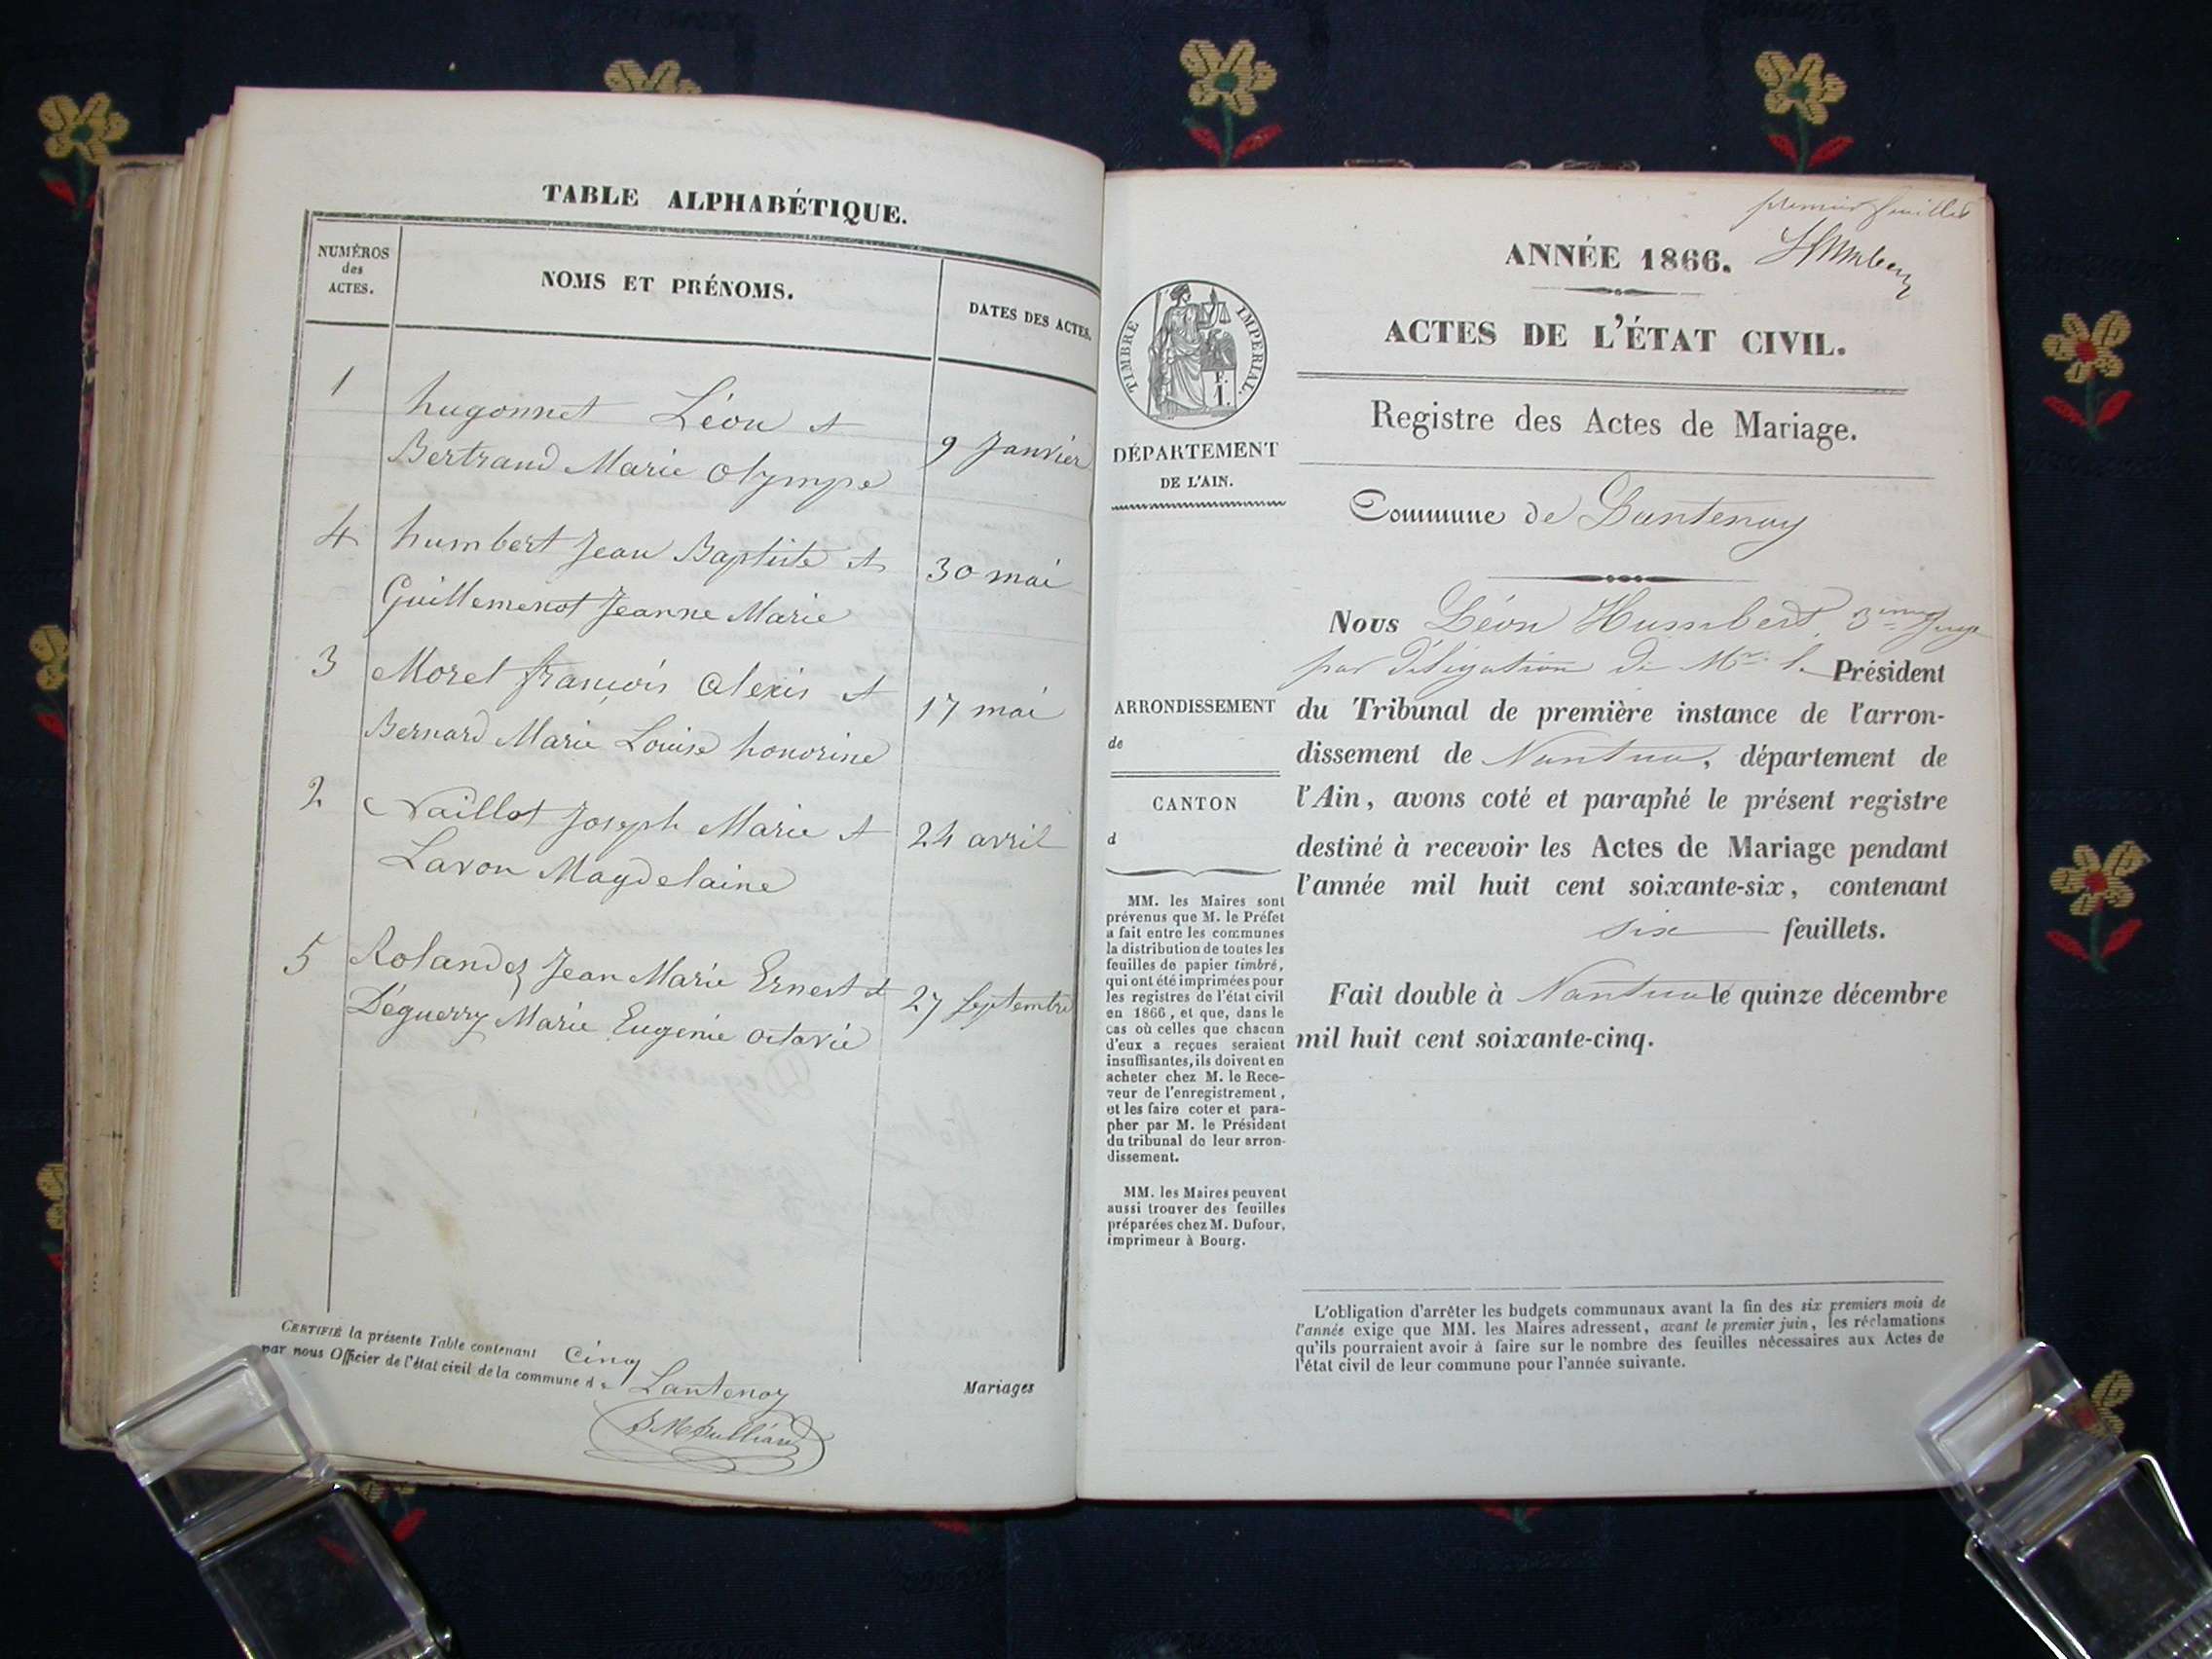 TABLE ALPHABÉTIQUE.
NUMÉROS
des
ACTES.
NOMS ET PRÉNOMS.
DATES DES ACTES.
1
hugonnet Léon et
Bertrand Marie olympe
9 Janvier
4
humbert Jean Baptiste et
Guillemenot Jeanne Marie
30 mai
3
Morel françois alexis et
Bernard Marie Louise honorine
17 mai
2
Naillot Joseph Marie et
Lavon Magdelaine
24 avril
5
Rolandez Jean Marie Ernest et
Déguerry Marie Eugenie octavie
27 Septembre
CERTIFIÉ la présente Table contenant Cinq
par nous Officier de l'état civil de la commune de Lantenay
Mariages
premier feuillet
ANNÉE 1866.
ACTES DE L'ÉTAT CIVIL.
Registre des Actes de Mariage.
Commune de Lantenay
TIMBRE IMPERIAL.
F.
1.
DÉPARTEMENT
DE L'AIN.
ARRONDISSEMENT
de
CANTON
d
MM. les Maires sont
prévenus que M. le Préfet
a fait entre les communes
la distribution de toutes les
feuilles de papier timbré,
qui ont été imprimées pour
les registres de l'état civil
en 1866, et que, dans le
cas où celles que chacun
d'eux a reçues seraient
insuffisantes, ils doivent en
acheter chez M. le Rece-
veur de l'enregistrement,
et les faire coter et para-
pher par M. le Président
du tribunal de leur arron-
dissement.
MM. les Maires peuvent
aussi trouver des feuilles
préparées chez M. Dufour,
imprimeur à Bourg.
Nous Léon Humbert, Juge
par délégation de Mr. le Président
du Tribunal de première instance de l'arron-
dissement de Nantua, département de
l'Ain, avons coté et paraphé le présent registre
destiné à recevoir les Actes de Mariage pendant
l'année mil huit cent soixante-six, contenant
six feuillets.
Fait double à Nantua le quinze décembre
mil huit cent soixante-cinq.
L'obligation d'arrêter les budgets communaux avant la fin des six premiers mois de
l'année exige que MM. les Maires adressent, avant le premier juin, les réclamations
qu'ils pourraient avoir à faire sur le nombre des feuilles nécessaires aux Actes de
l'état civil de leur commune pour l'année suivante.